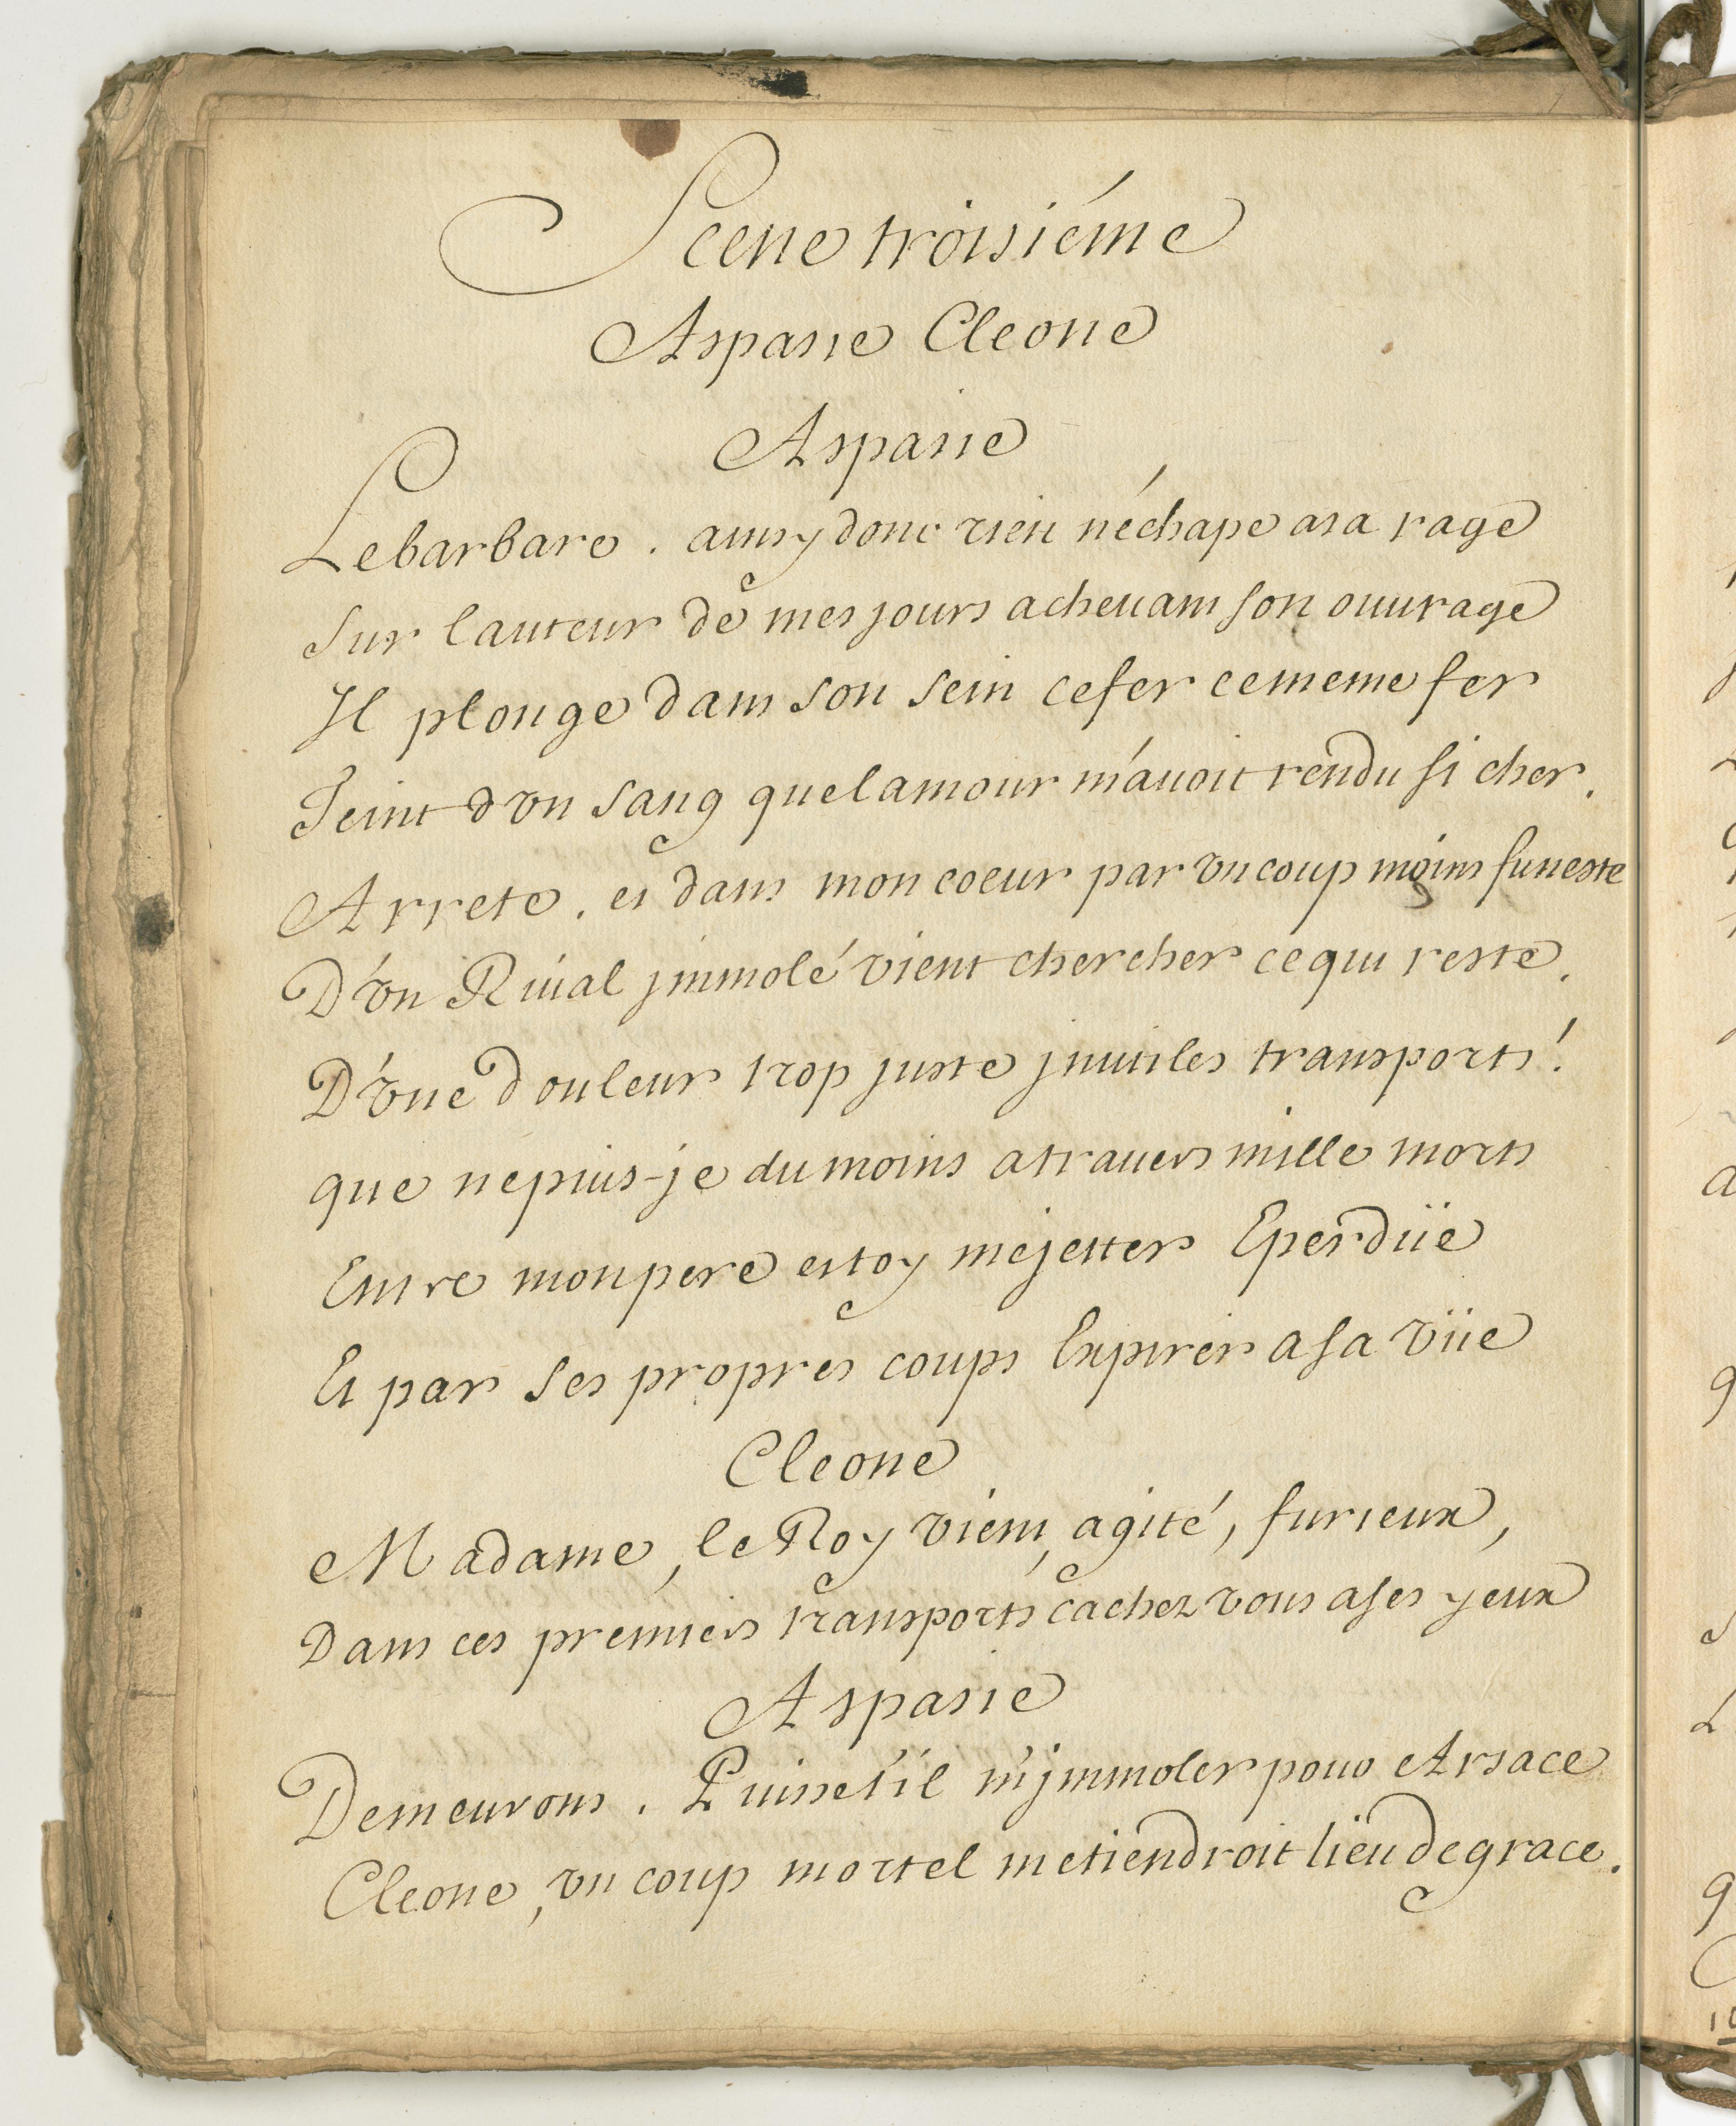 Scene troisiéme
Aspasie Cleone
Aspasie
Le barbare. ainsy donc rien n'échape a sa rage
Sur lauteur de mes jours achevant son ouurage
Il plonge dans son sein ce fer ce meme fer
Teint d'vn sang que lamour m'auoit rendu si cher.
Arrete. et dans mon coeur par vn coup moins funeste
D'vn Riual jmmolé vient chercher ce qui reste.
D'vne douleur trop juste jnutiles transports!
que ne puis-je du moins a trauers mille morts
Entre mon pere et toy me jetter Eperdüe
Et par ses propres coups Expirer a sa vüe
Cleone
Madame, le Roy vient, agité, furieux,
Dans ces premiers transports cachez vous a ses yeux
Aspasie
Demeurons. Puisset'il m'jmmoler pour Arsace
Cleone, vn coup mortel me tiendroit lieu de grace.